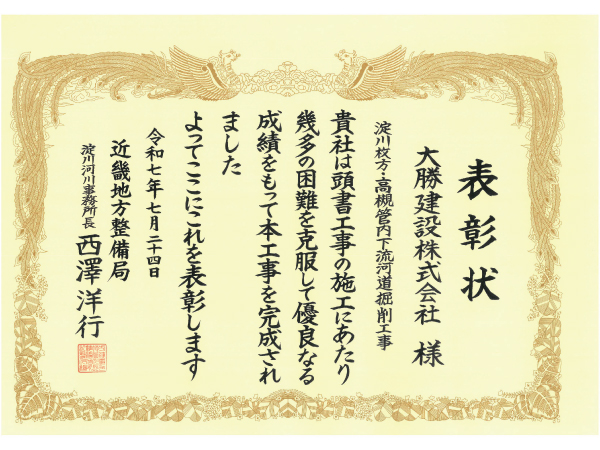 表彰状
大勝建設株式会社 様
淀川枚方・高槻管内下流河道掘削工事
貴社は頭書工事の施工にあたり
幾多の困難を克服して優良なる
成績をもって本工事を完成され
ました
よってここにこれを表彰します
令和七年七月二十四日
近畿地方整備局
淀川河川事務所長 西澤洋行